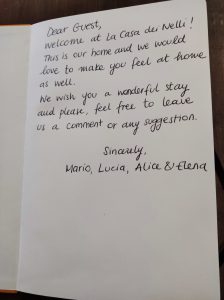 Dear Guest,
welcome at La Casa dei Nelli!
This is our home and we would
love to make you feel at home
as well.
We wish you a wonderful stay
and please, feel free to leave
us a comment or any suggestion.
Sincerely,
Mario, Lucia, Alice & Elena